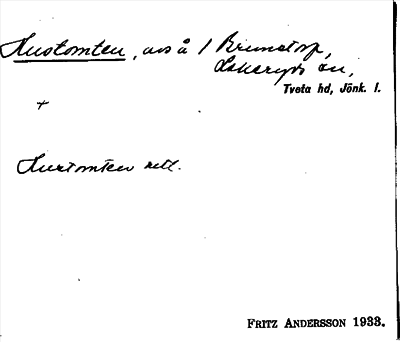 Hustomten, avs å 1 Brunstorp,
Lekeryds sn,
Tveta hd, Jönk. l.
+
Hustomten rell.
FRITZ ANDERSSON 1933.